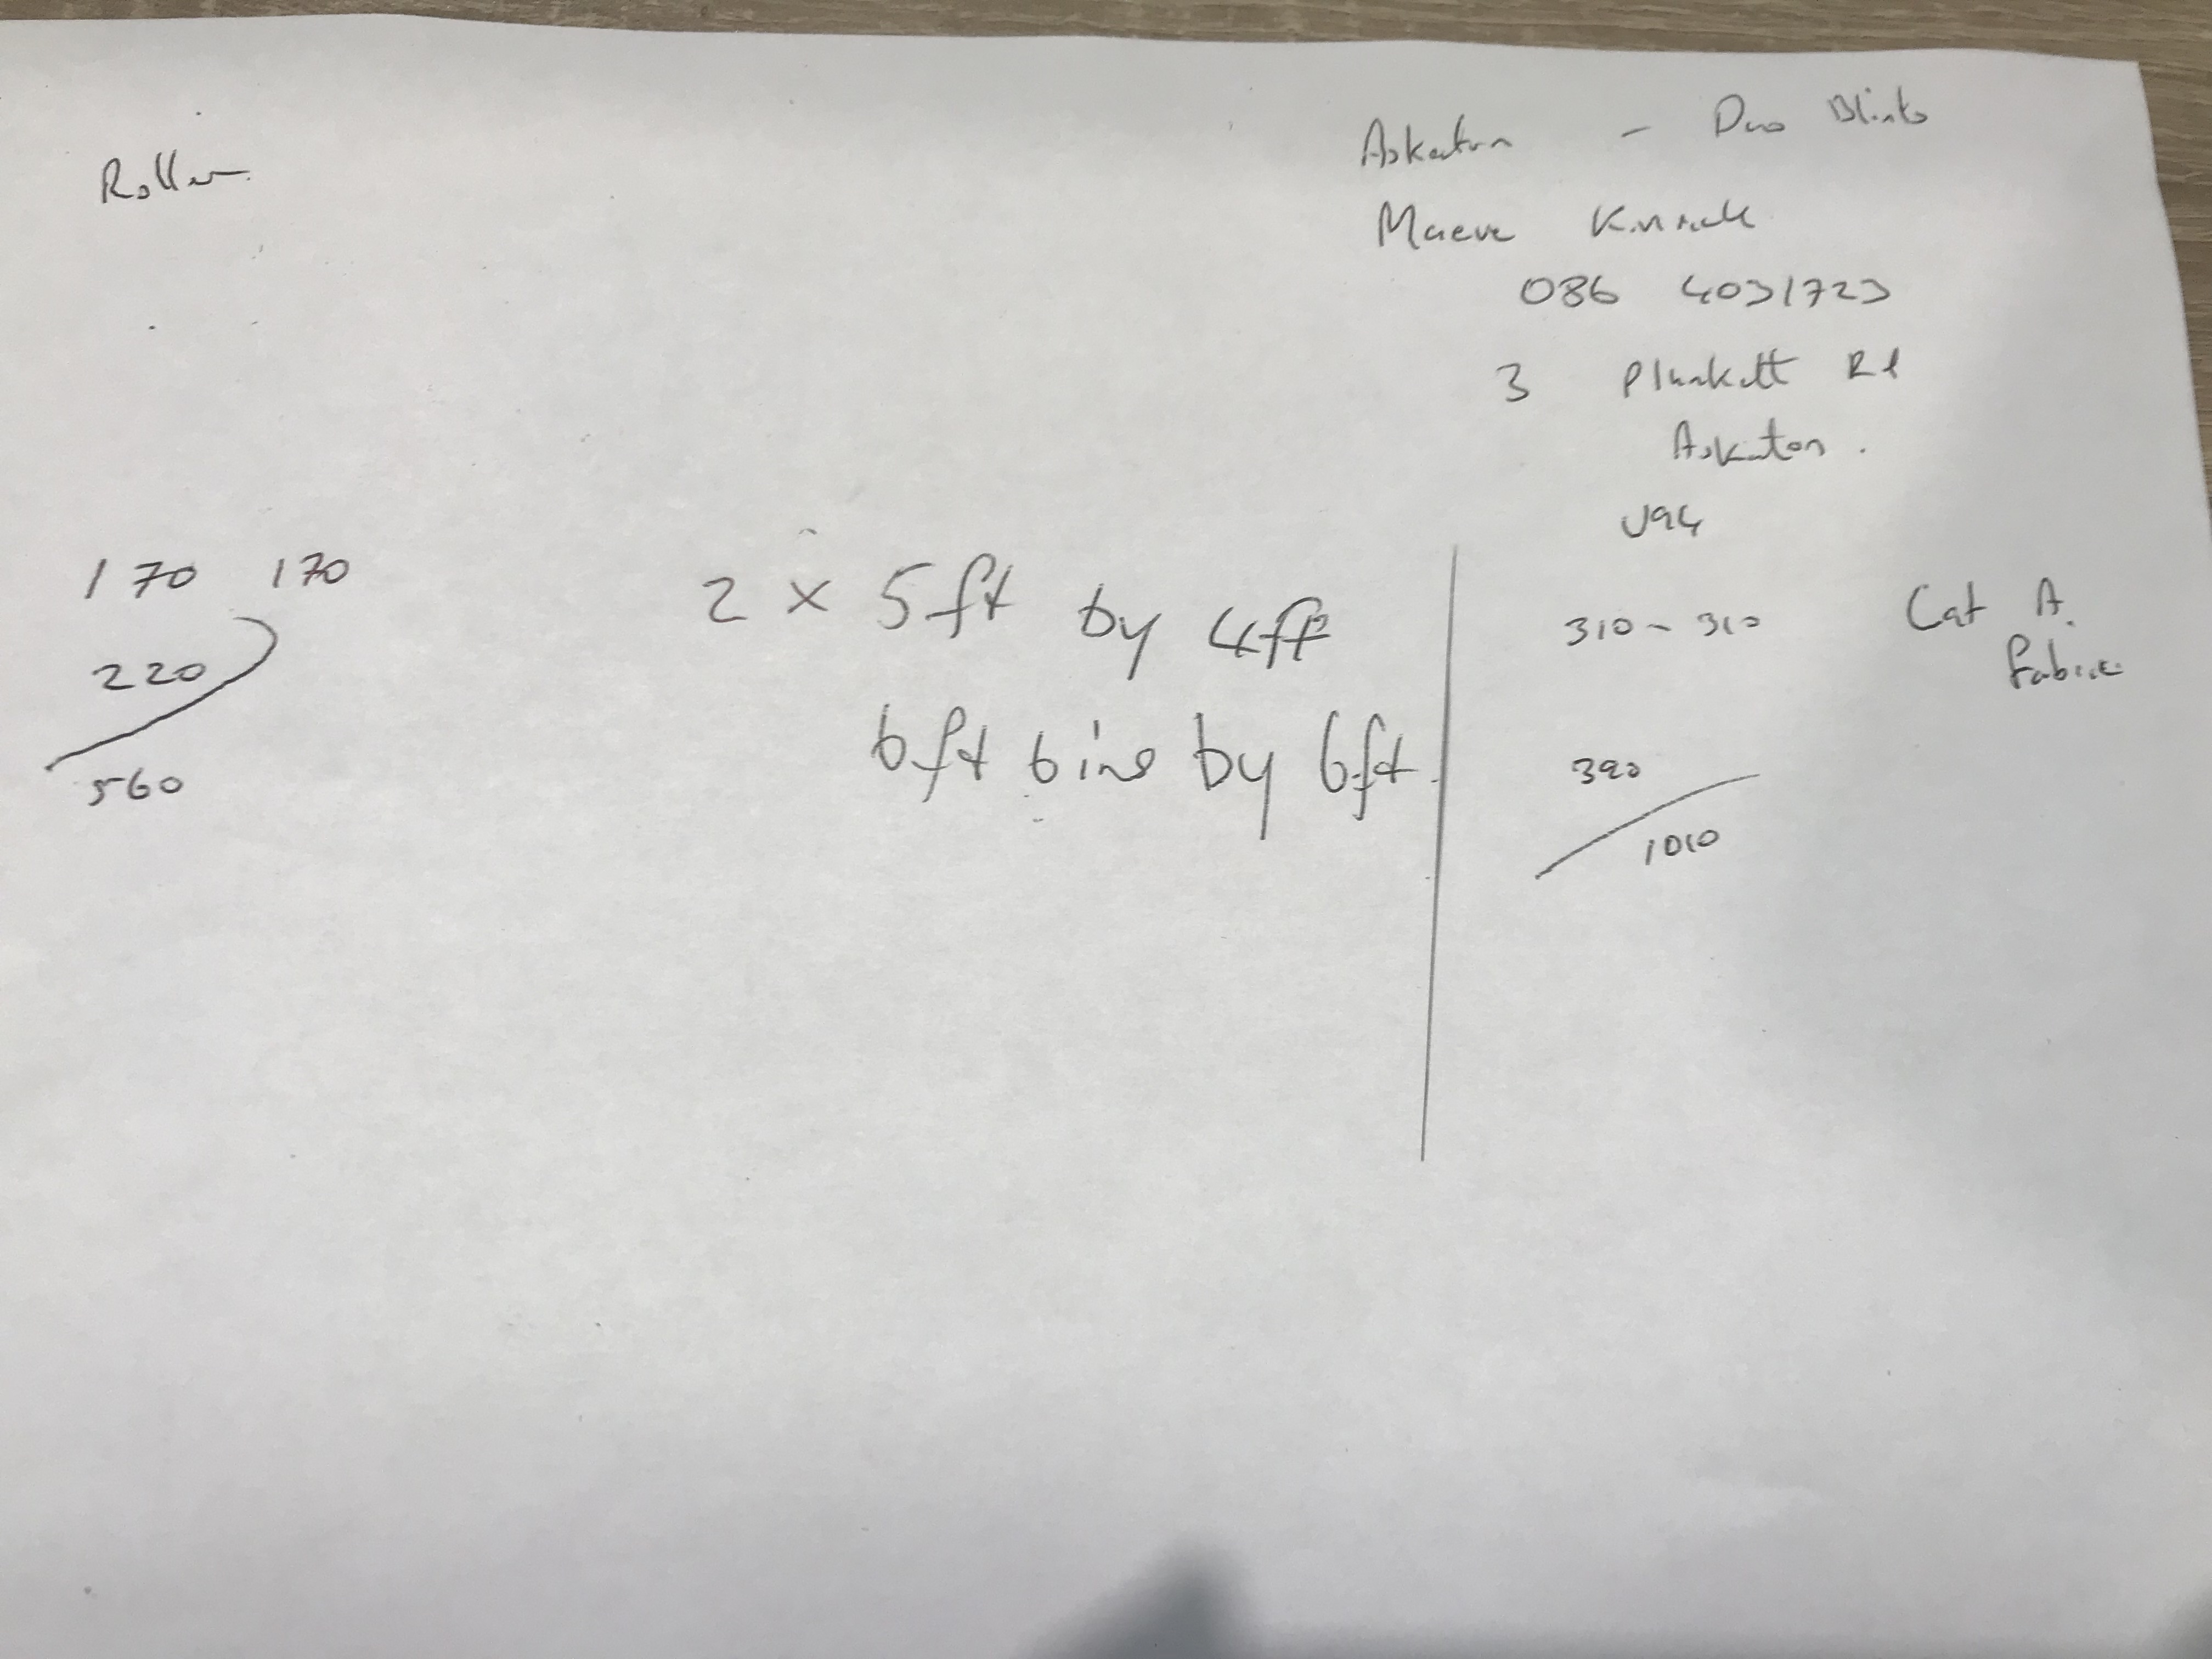 Roller
Askeaton - Duo Blinds
Maeve
086 4031723
3 Plunkett Rd
Askeaton.
V94
170 170
220
560
2 x 5ft by 4ft
6ft 6ins by 6ft.
310 - 310
Cat A.
Fabric
390
1010